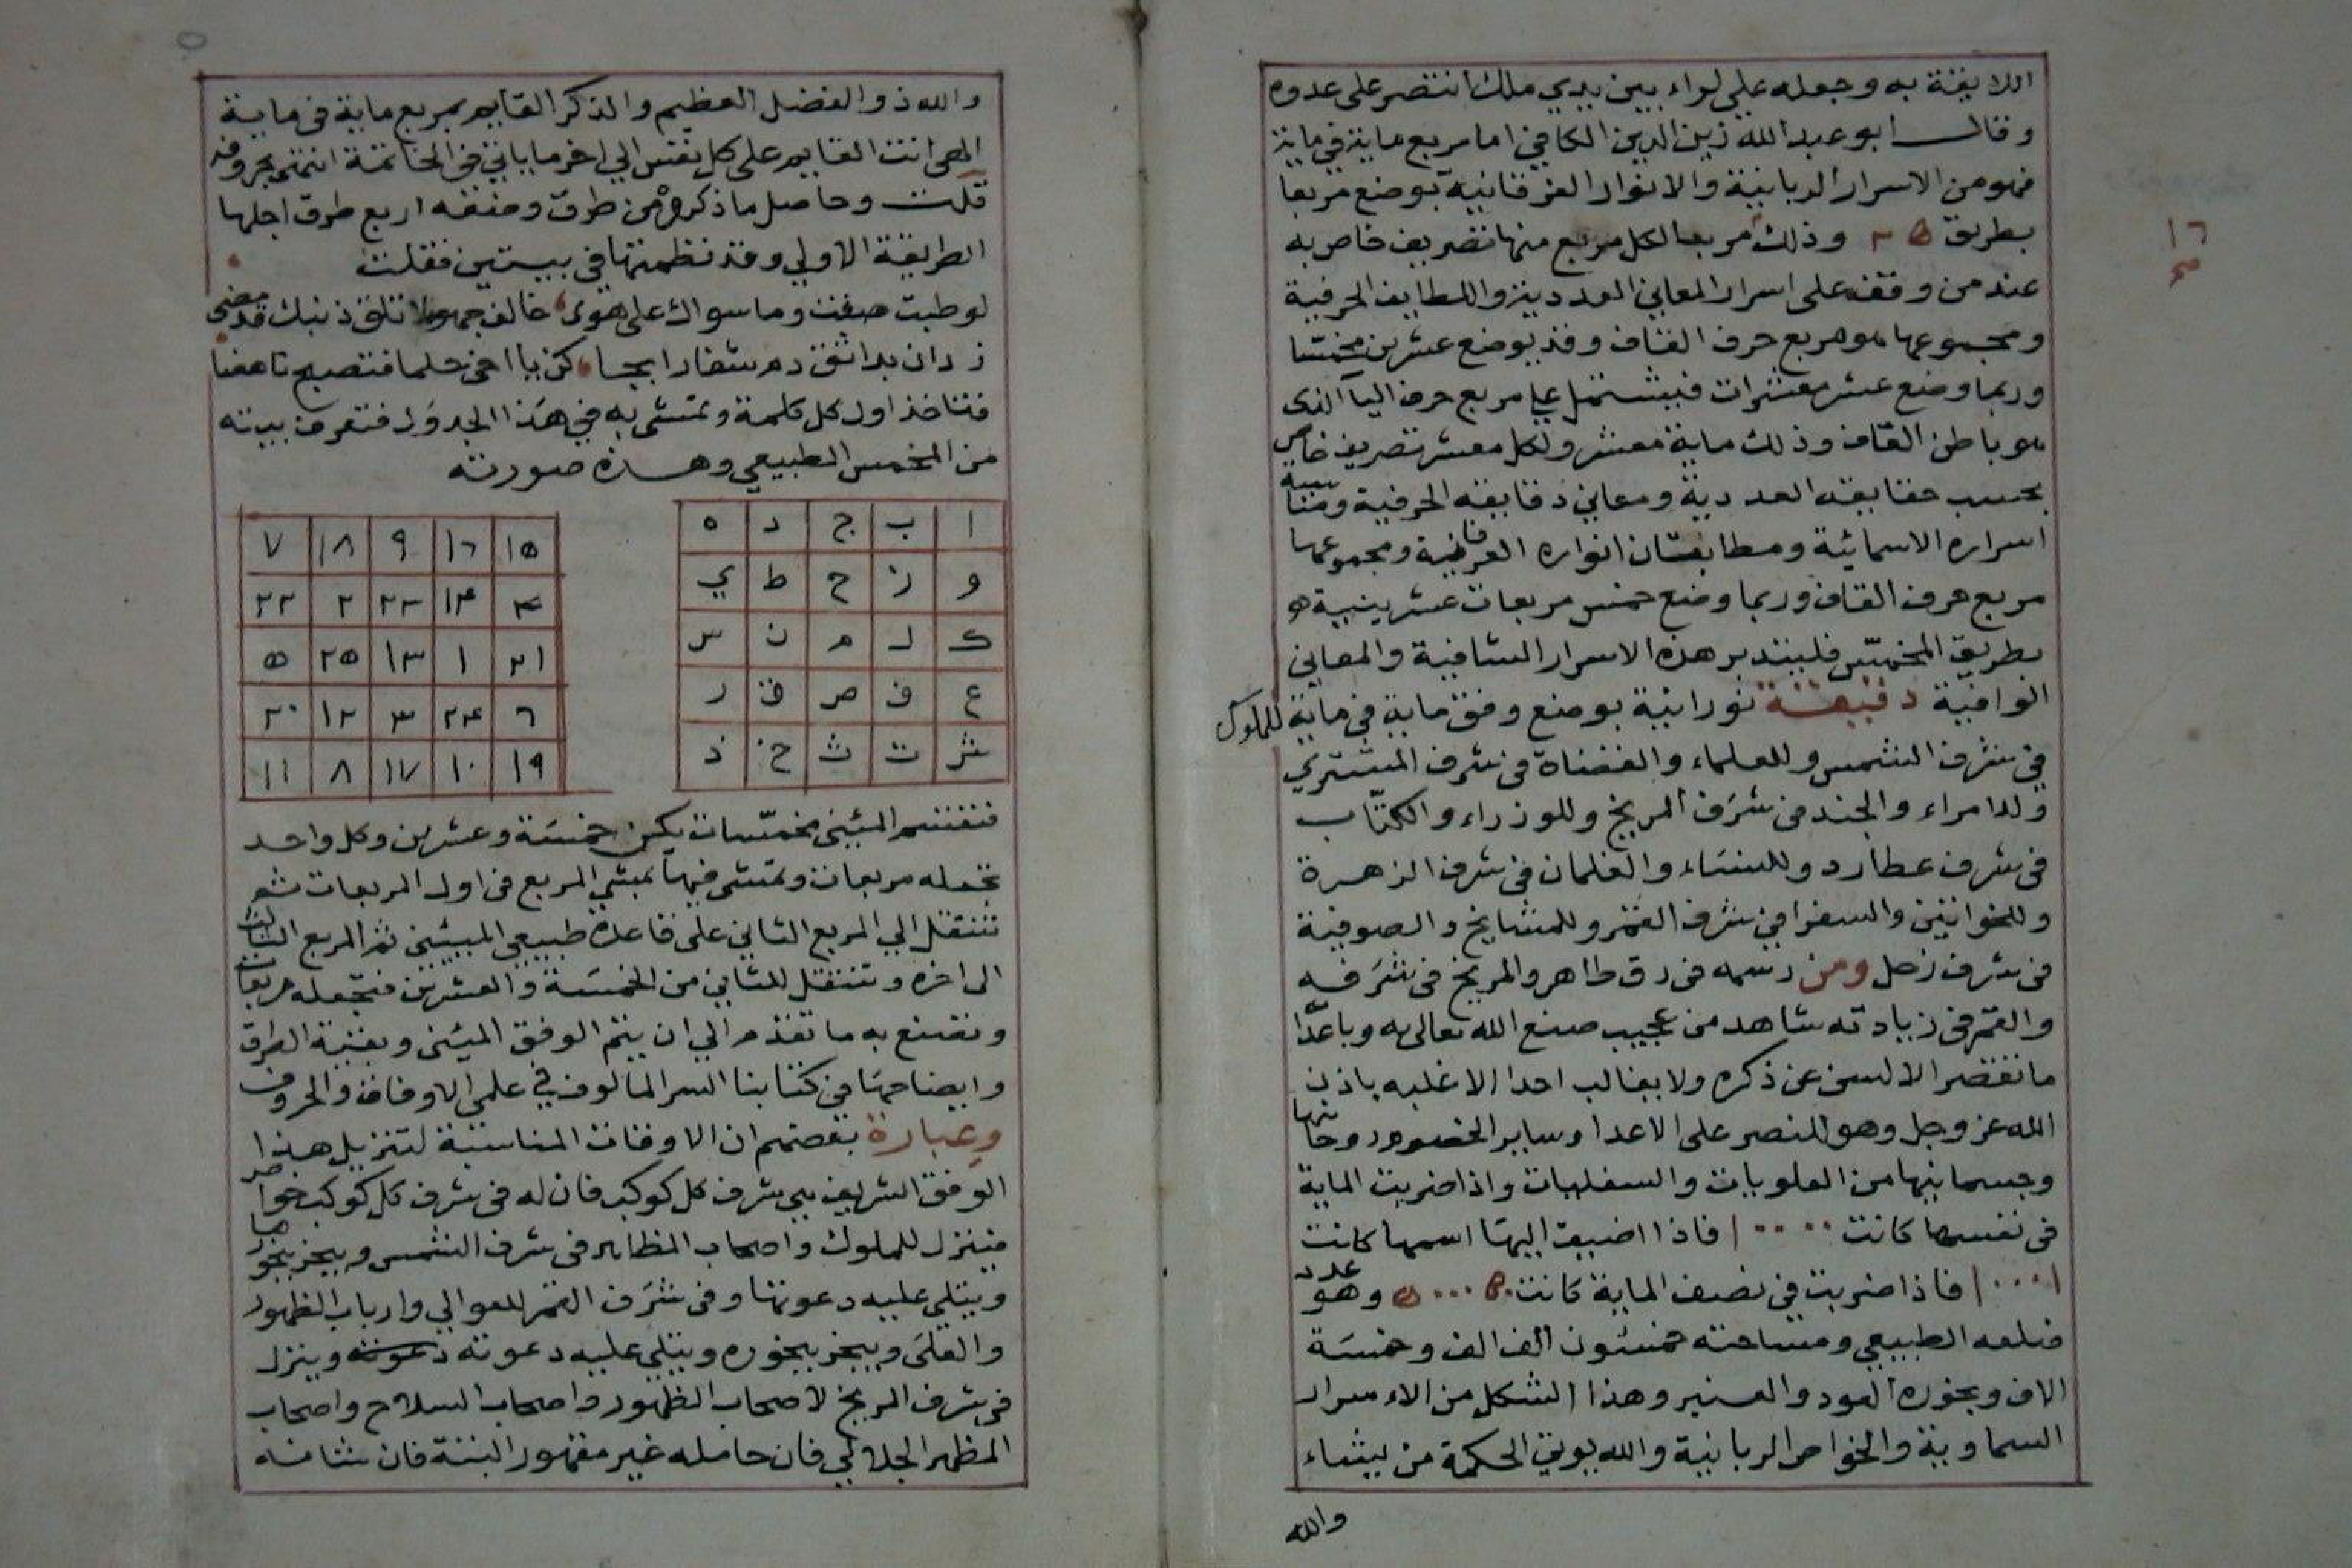 اللايقة به وجعله علي لواء بين يدي ملك انتصر على عدوه
وقال ابو عبد الله زين الدين الكافي اما مربع ماية في ماية
فهو من الاسرار الربانية والانوار العرفانية بوضع مربعا
بطريق وذلك مربعا لكل مربع منها تصريف خاص به
عند من وقف على اسرار المعاني العددية واللطايف الحرفية
ومجموعها هو مربع حرف القاف وقد يوضع عشرين مخمسا
وربما وضع عشر معشرات فيشتمل علي مربع حرف اليا الذى
هو باطن القاف وذلك ماية معشر ولكل معشر تصريف خاص
بحسب حقايقه العددية ومعاني دقايقه الحرفية ومناسبة
اسراره الاسمائية ومطابقتان انواره العرفانية ومجموعها
مربع حرف القاف وربما وضع خمس مربعات عشرينية
بطريق المخمس فليتدبر هذه الاسرار الشافية والمعاني
الوافية دقيقة نورانية بوضع وفق ماية في ماية للملوك
في شرف الشمس وللعلماء والقضاة في شرف المشتري
ولامراء والجند في شرف المريخ وللوزراء والكتاب
في شرف عطارد وللنساء والغلمان في شرف الزهرة
وللخواتين والسفرا في شرف القمر وللمشايخ والصوفية
في شرف زحل ومن رسمه في رق طاهر والمريخ في شرفه
والقمر في زيادته شاهد من عجيب صنع الله تعالى به وباعدا
ما تقصر الالسن عن ذكره ولا يغالب احدا الا غلبه باذن
الله عز وجل وهو للنصر على الاعدا وساير الخصوم روحانيها
وجسمانيها من العلويات والسفليات واذا ضربت الماية
في نفسها كانت ١٠٠٠٠ فاذا اضيف اليها اسمها كانت
١٠٠٠١ فاذا ضربت في نصف الماية كانت ٥٠٠٠٥٠ وهو عدد
ضلعه الطبيعي ومساحته خمسون الف الف وخمسة
الاف وبخوره العود والعنبر وهذا الشكل من الاسرار
السماوية والخواص الربانية والله يوتي الحكمة من يشاء
والله
١٦
والله ذو الفضل العظيم والذكر القايم بمربع ماية في ماية
الهي انت القايم على كل نفس الي اخر ما ياتي في الخاتمة انتهى بحروفه
قلت وحاصل ما ذكره من طرق وضعه اربع طرق اجلها
الطريقة الاولي وقد نظمتها في بيتين فقلت
لو طبت صفت وما سواك على هوى خالف جهولا تلق ذنبك قد مضى
زد ان بدا ثق دم شفارا بجا كن يا اخي حلما فتصبح ناهضا
فتاخذ اول كل كلمة وتمشى به في هذا الجدول فتعرف بيته
من المخمس الطبيعي وهذه صورته
ا ب ج د ه
و ز ح ط ي
ك ل م ن س
ع ف ص ق ر
ش ت ث خ ذ
١٥ ١٦ ٩ ١٨ ٧
٤ ١٤ ٢٣ ٢ ٢٢
٢١ ١ ١٣ ٢٥ ٥
٦ ٢٤ ٣ ١٢ ٢٠
١٩ ١٠ ١٧ ٨ ١١
فتقسم المئيني مخمسات يكن خمسة وعشرين وكل واحد
تجعله مربعات وتمشى فيها بمشي المربع في اول المربعات ثم
تنتقل الي المربع الثاني على قاعدة طبيعي المئيني ثم المربع الثالث
الى اخره وتنتقل للثاني من الخمسة والعشرين فتجعله مربعات
وتصنع به ما تقدم الي ان يتم الوفق المئيني وبقية الطرق
وايضاحها في كتابنا السر المالوف في علمي الاوفاق والحروف
وعبارة بعضهم ان الاوقات المناسبة لتنزيل هذا
الوفق الشريف هي شرف كل كوكب فان له في شرف كل كوكب خواص
فينزل للملوك واصحاب المظاهر في شرف الشمس ويبخر ببخورها
ويتلي عليه دعوتها وفي شرف القمر للعوالي وارباب الظهور
والعلى ويبخر ببخوره ويتلي عليه دعوته وينزل
في شرف المريخ لاصحاب الظهور واصحاب السلاح واصحاب
المظهر الجلالي فان حامله غير مقهور البتة فان شانه